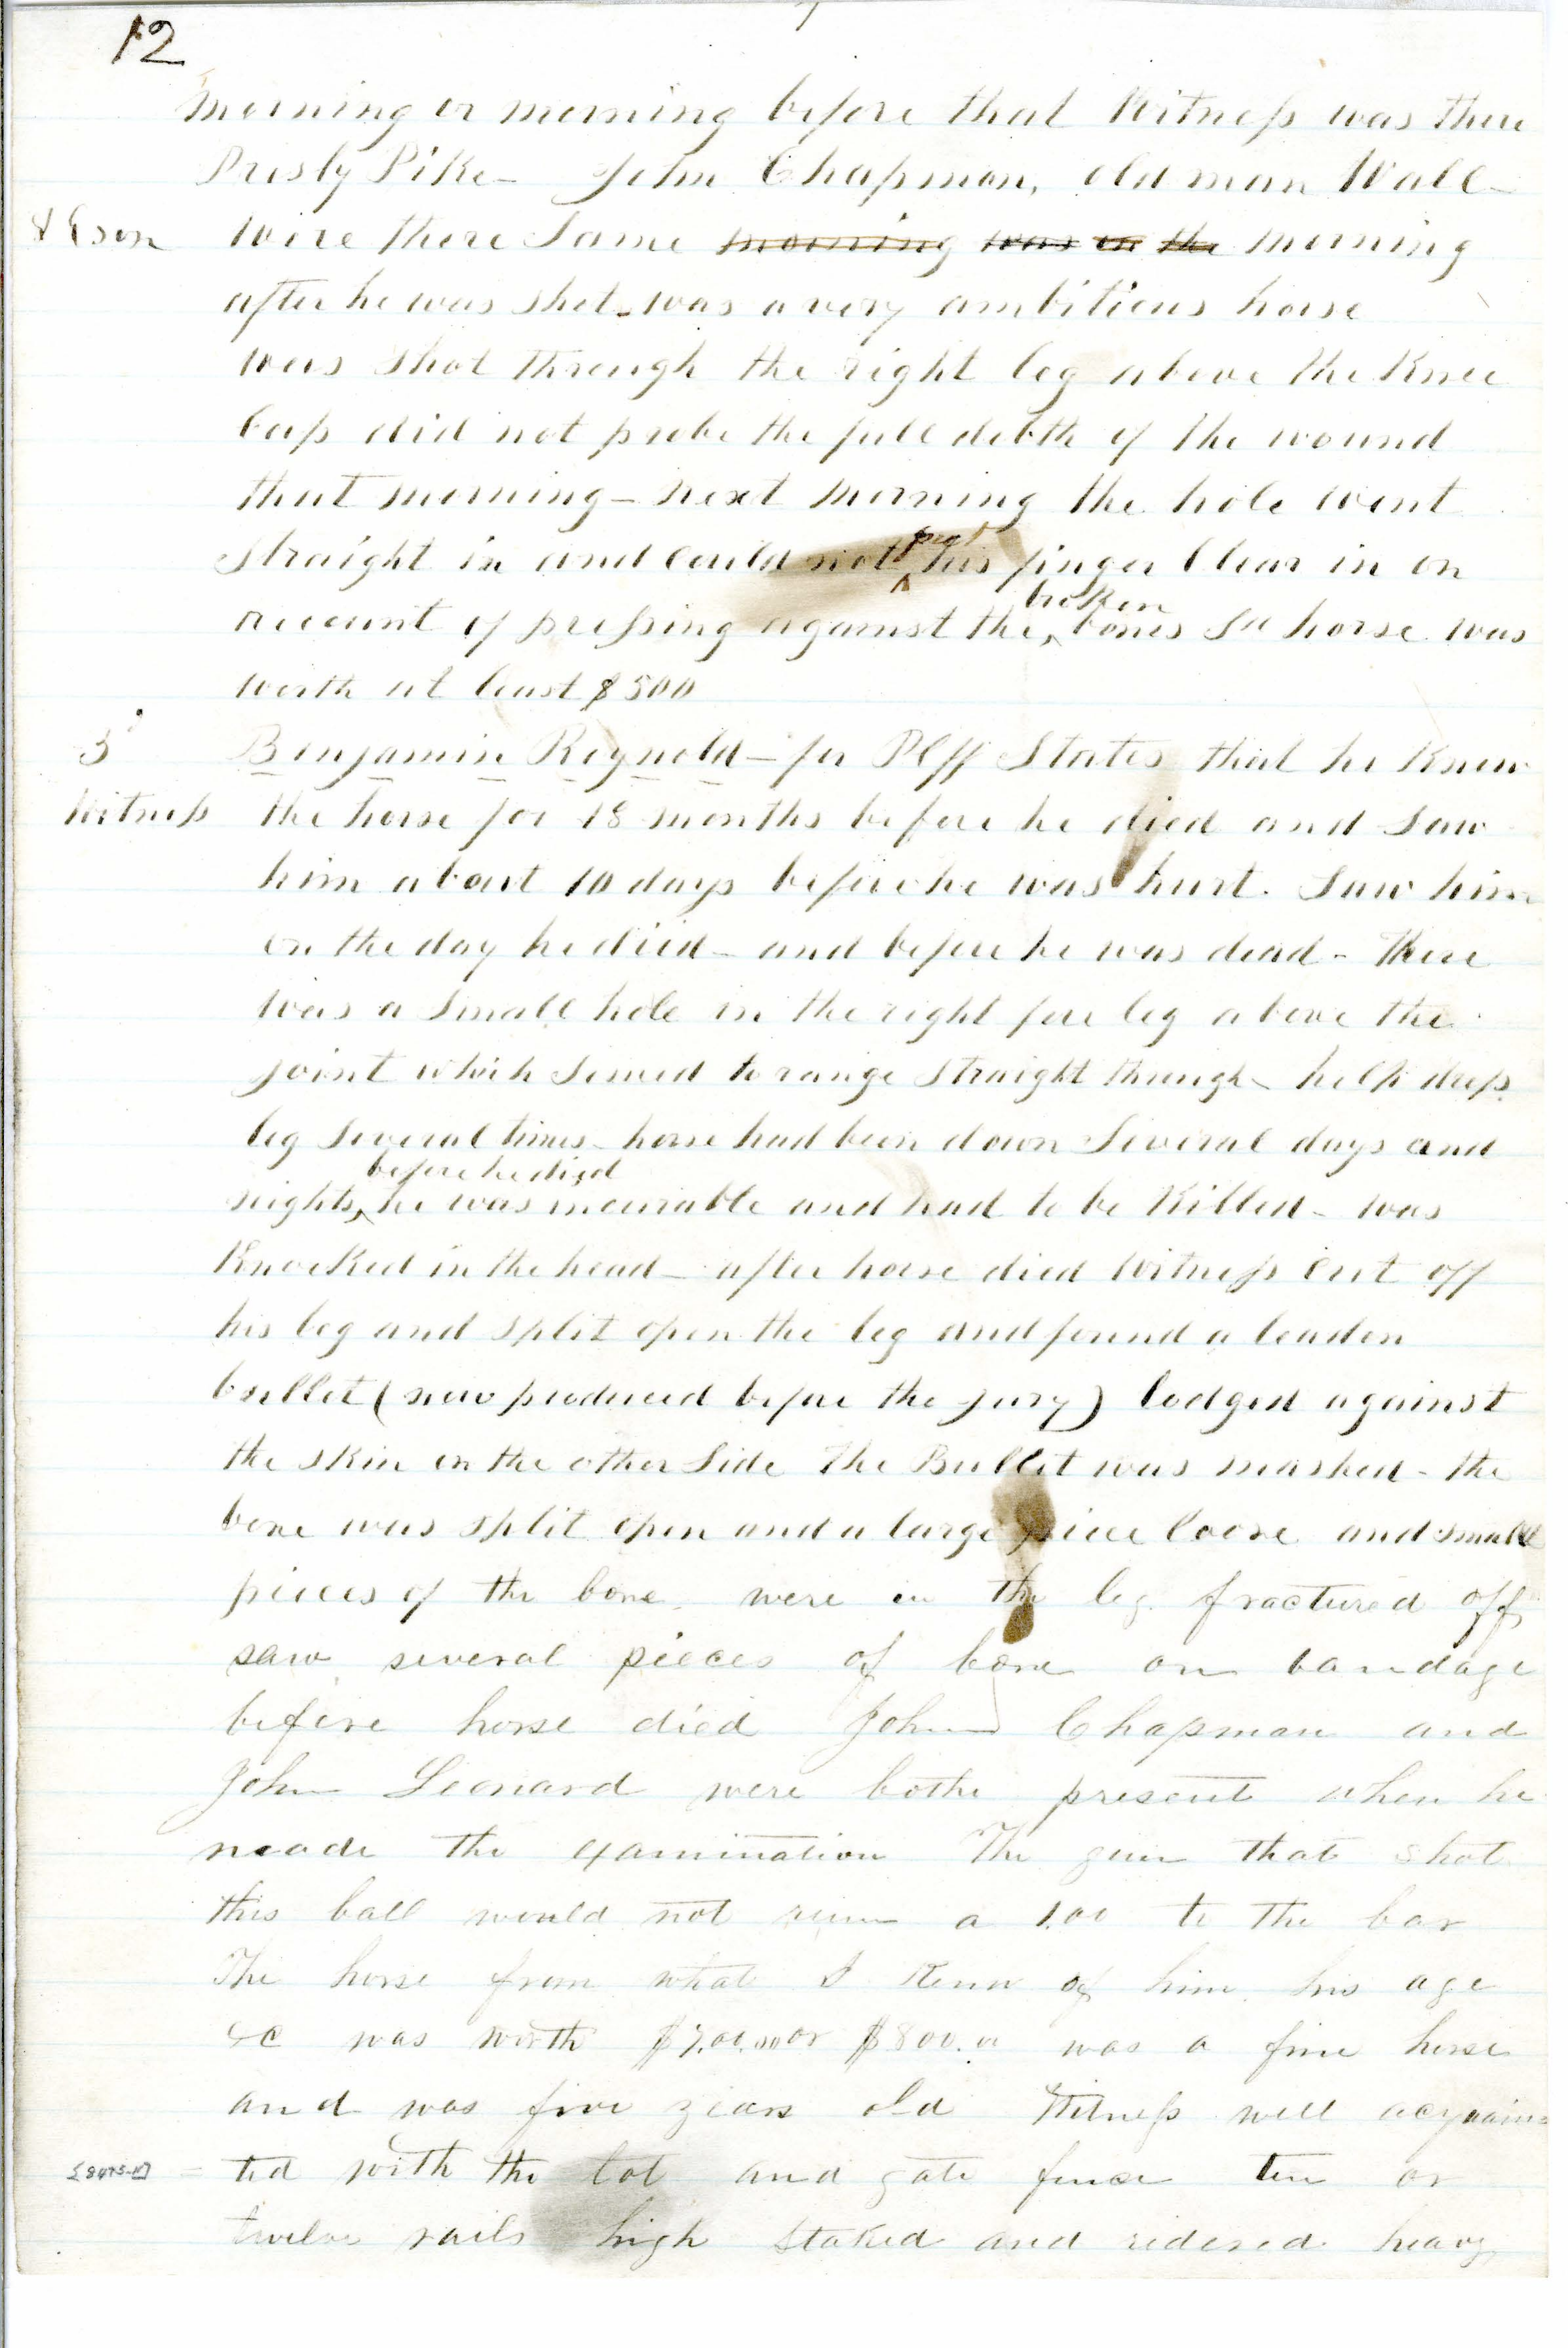 12
morning or morning before that Witness was there
Presly Pike - John Chapman, old man Wall -
& son were there Same morning was on the morning
after he was shot - was a very ambitious horse
was shot through the right leg above the Knee
Cap did not probe the full debth of the wound
that morning - next morning the hole went
straight in and could not put his finger clear in on
account of pressing against the broken bones Sd horse was
worth at least $500
3d Benjamin Reynold - for Plff States that he Knew
Witness the horse for 18 months before he died and Saw
him about 10 days before he was hurt. Saw him
on the day he died - and before he was dead - there
was a Small hole in the right fore leg above the
joint which Seemed to range Straight through - help dress
leg Several times - horse had been down Several days and
nights, before he died he was incurable and had to be Killed - was
Knocked in the head - after horse died Witness cut off
his leg and split open the leg and found a leaden
bullet (now produced before the jury) lodged against
the skin on the other Side the Bullet was mashed - the
bone was split open and a large piece loose and small
pieces of the bone were in the leg fractured off
saw several pieces of bone on bandage
before horse died John Chapman and
John Leonard were bothe present when he
made the examination The gun that shot
this ball would not run a 100 to the bar
The horse from what I Know of him his age
&c was worth $700.00 or $800.00 was a fine horse
and was five years old Witness well acquain=
ted with the lot and gate fence ten or
twelve rails high Staked and ridered heavy